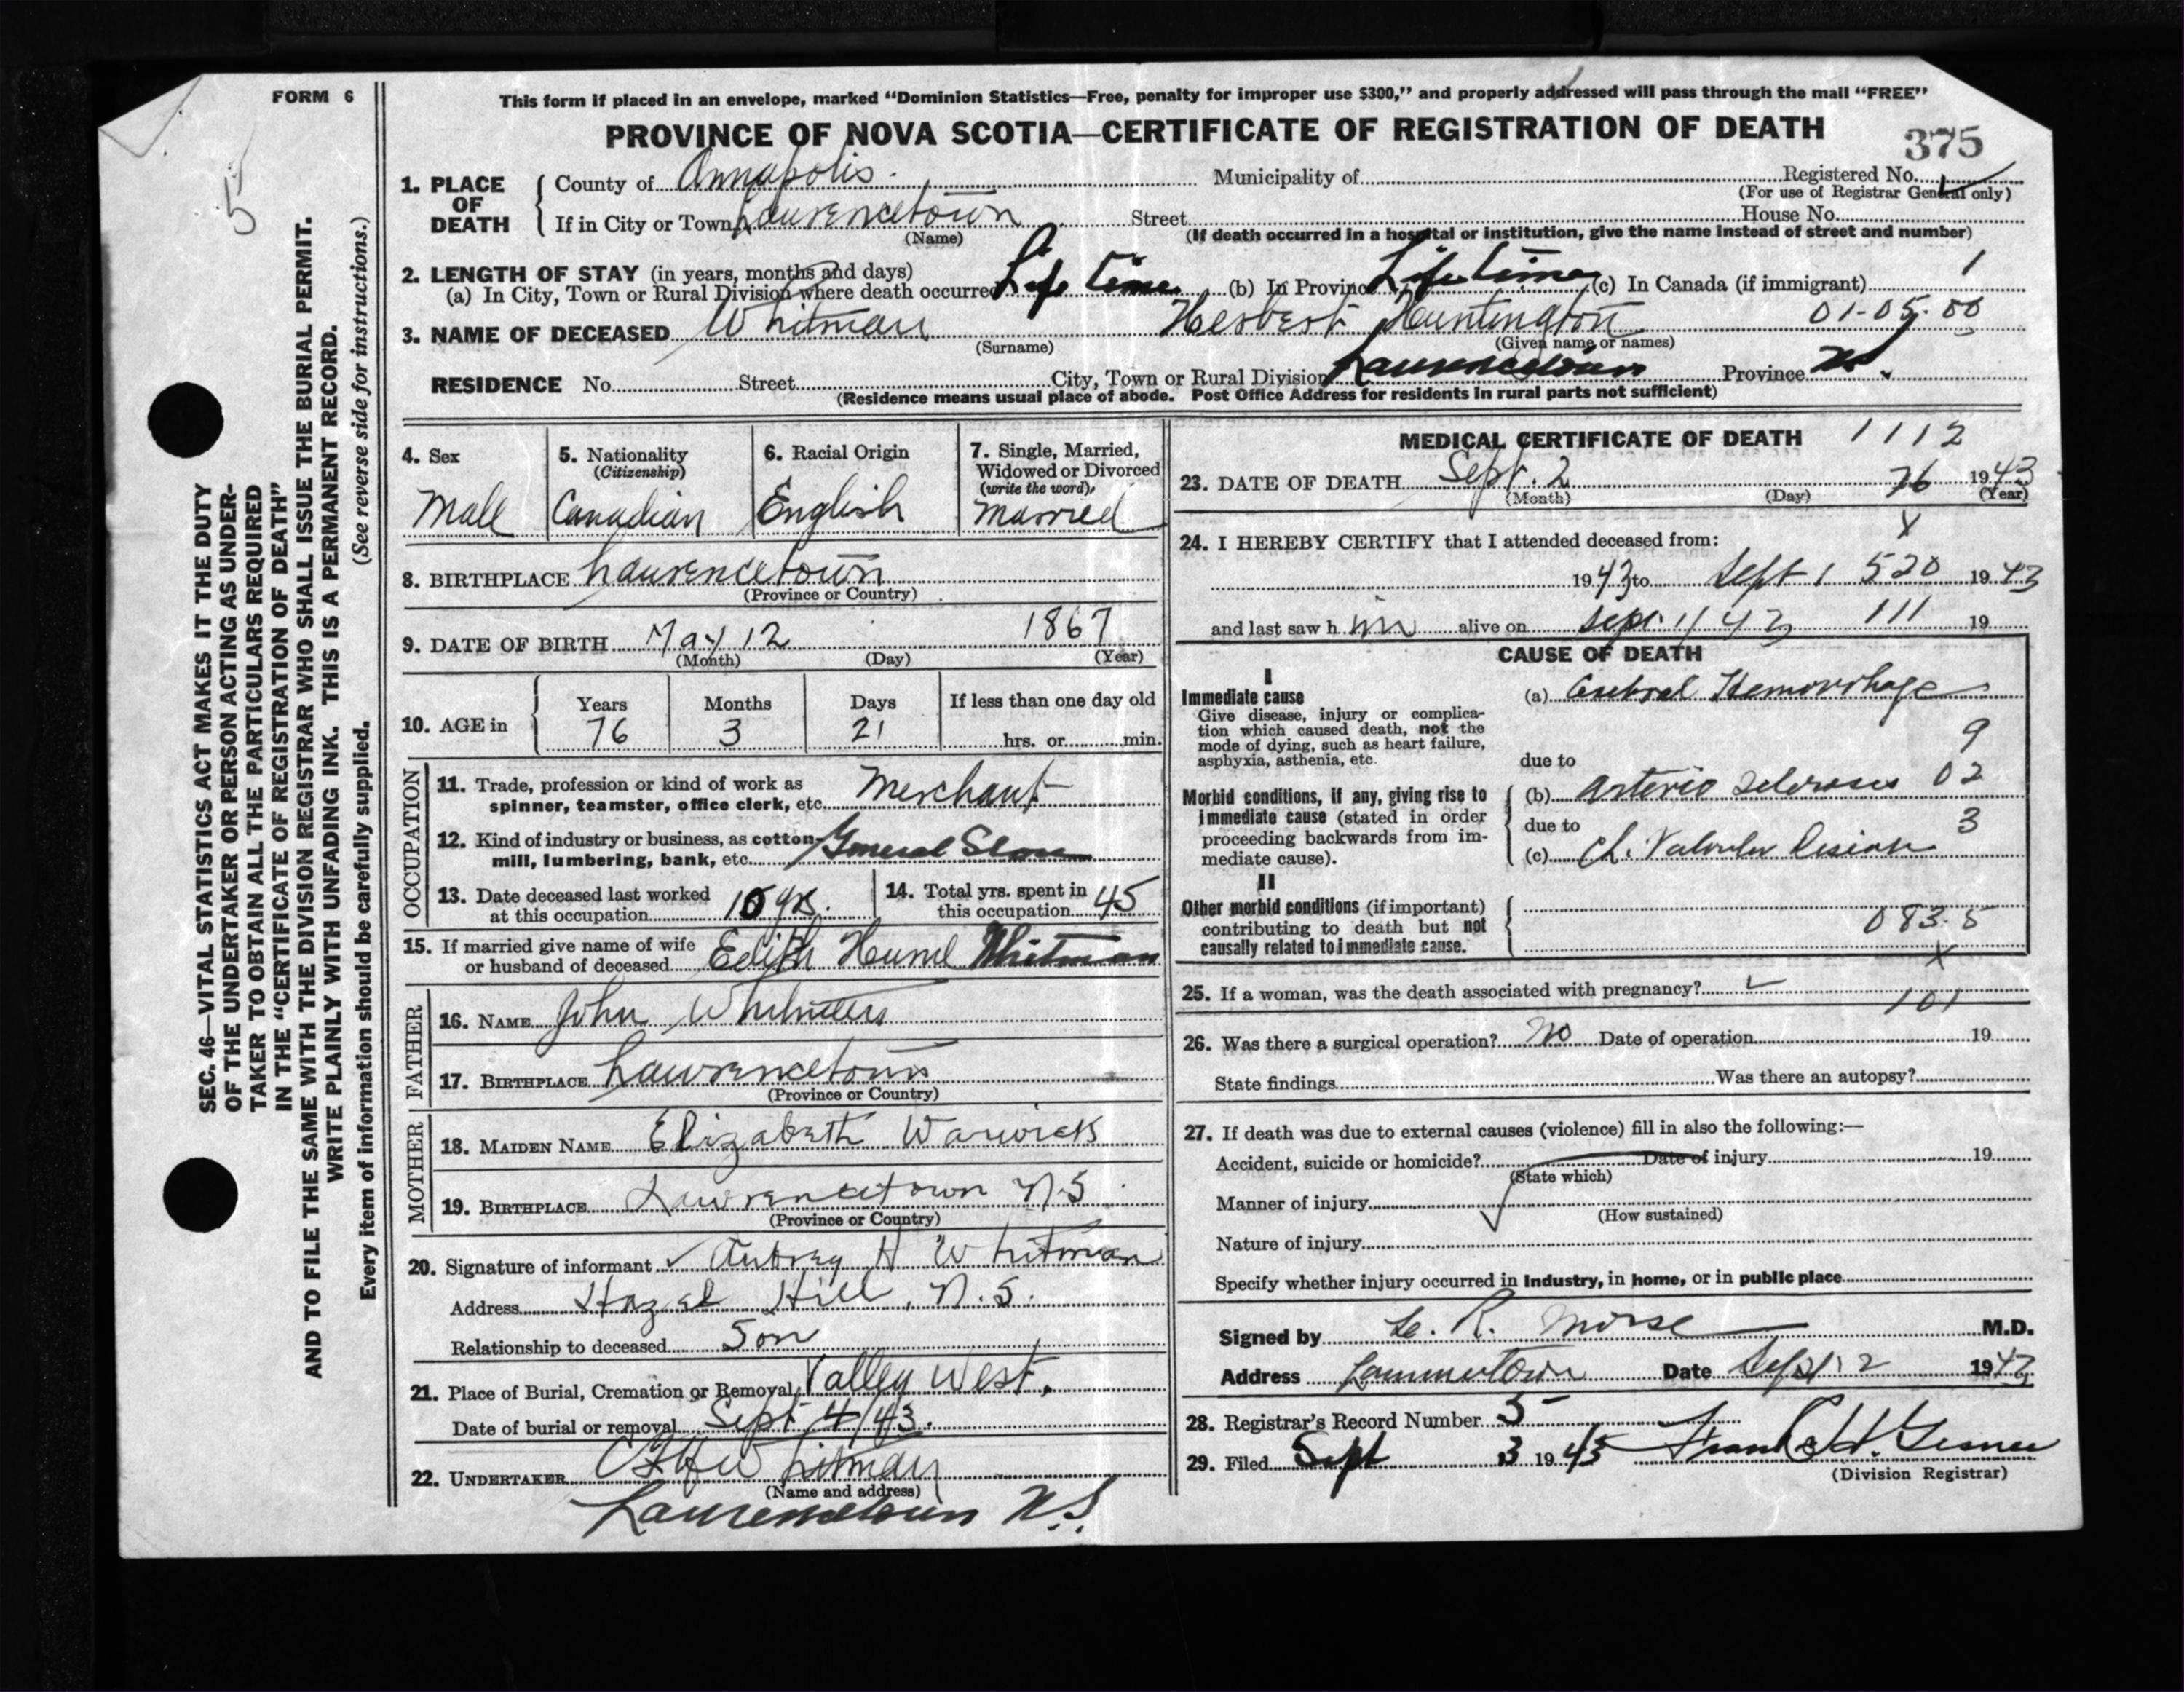 FORM 6
5
This form if placed in an envelope, marked “Dominion Statistics—Free, penalty for improper use $300,” and properly addressed will pass through the mail “FREE”
PROVINCE OF NOVA SCOTIA—CERTIFICATE OF REGISTRATION OF DEATH
375
1. PLACE OF DEATH
County of Annapolis. Municipality of Registered No.
(For use of Registrar General only)
If in City or Town Lawrencetown Street House No.
(Name) (If death occurred in a hospital or institution, give the name instead of street and number)
2. LENGTH OF STAY (in years, months and days)
(a) In City, Town or Rural Division where death occurred Life time (b) In Province Life time (c) In Canada (if immigrant) 1
3. NAME OF DECEASED Whitman Herbert Huntington 01-05-00
(Surname) (Given name or names)
RESIDENCE No. Street City, Town or Rural Division Lawrencetown Province N.S.
(Residence means usual place of abode. Post Office Address for residents in rural parts not sufficient)
4. Sex
Male
5. Nationality
(Citizenship)
Canadian
6. Racial Origin
English
7. Single, Married,
Widowed or Divorced
(write the word)
Married
8. BIRTHPLACE Lawrencetown
(Province or Country)
9. DATE OF BIRTH May 12 1867
(Month) (Day) (Year)
10. AGE in
Years Months Days If less than one day old
76 3 21 hrs. or min.
OCCUPATION
11. Trade, profession or kind of work as
spinner, teamster, office clerk, etc. Merchant
12. Kind of industry or business, as cotton-
mill, lumbering, bank, etc. General Store
13. Date deceased last worked
at this occupation 10 yrs.
14. Total yrs. spent in
this occupation 45
15. If married give name of wife
or husband of deceased Edith Whitman
FATHER
16. NAME John
17. BIRTHPLACE Lawrencetown
(Province or Country)
MOTHER
18. MAIDEN NAME Elizabeth Warwick
19. BIRTHPLACE Lawrencetown N.S.
(Province or Country)
20. Signature of informant Aubrey H Whitman
Address Hazel Hill, N.S.
Relationship to deceased Son
21. Place of Burial, Cremation or Removal Valley West.
Date of burial or removal Sept 4/43.
22. UNDERTAKER Whitman
(Name and address)
Lawrencetown N.S.
MEDICAL CERTIFICATE OF DEATH 1112
23. DATE OF DEATH Sept. 2 76 1943
(Month) (Day) (Year)
X
24. I HEREBY CERTIFY that I attended deceased from:
1943 to Sept 1 520 1943
and last saw him alive on Sept. 1/43 111 19
CAUSE OF DEATH
I
Immediate cause
Give disease, injury or complica-
tion which caused death, not the
mode of dying, such as heart failure,
asphyxia, asthenia, etc.
(a) Cerebral Hemorrhage
9
due to
Morbid conditions, if any, giving rise to
immediate cause (stated in order
proceeding backwards from im-
mediate cause).
(b) Arterio Sclerosis 02
due to 3
(c) Ch. Valvular Lesion
II
Other morbid conditions (if important)
contributing to death but not
causally related to immediate cause.
083.5
X
25. If a woman, was the death associated with pregnancy?
101
26. Was there a surgical operation? No Date of operation 19
State findings Was there an autopsy?
27. If death was due to external causes (violence) fill in also the following:—
Accident, suicide or homicide? Date of injury 19
(State which)
Manner of injury
(How sustained)
Nature of injury
Specify whether injury occurred in industry, in home, or in public place
Signed by R. Morse M.D.
Address Lawrencetown Date Sept 2 1943
28. Registrar's Record Number 5
29. Filed Sept 3 1943 Frank H. Gesner
(Division Registrar)
SEC. 46—VITAL STATISTICS ACT MAKES IT THE DUTY
OF THE UNDERTAKER OR PERSON ACTING AS UNDER-
TAKER TO OBTAIN ALL THE PARTICULARS REQUIRED
IN THE “CERTIFICATE OF REGISTRATION OF DEATH”
AND TO FILE THE SAME WITH THE DIVISION REGISTRAR WHO SHALL ISSUE THE BURIAL PERMIT.
WRITE PLAINLY WITH UNFADING INK. THIS IS A PERMANENT RECORD.
Every item of information should be carefully supplied. (See reverse side for instructions.)